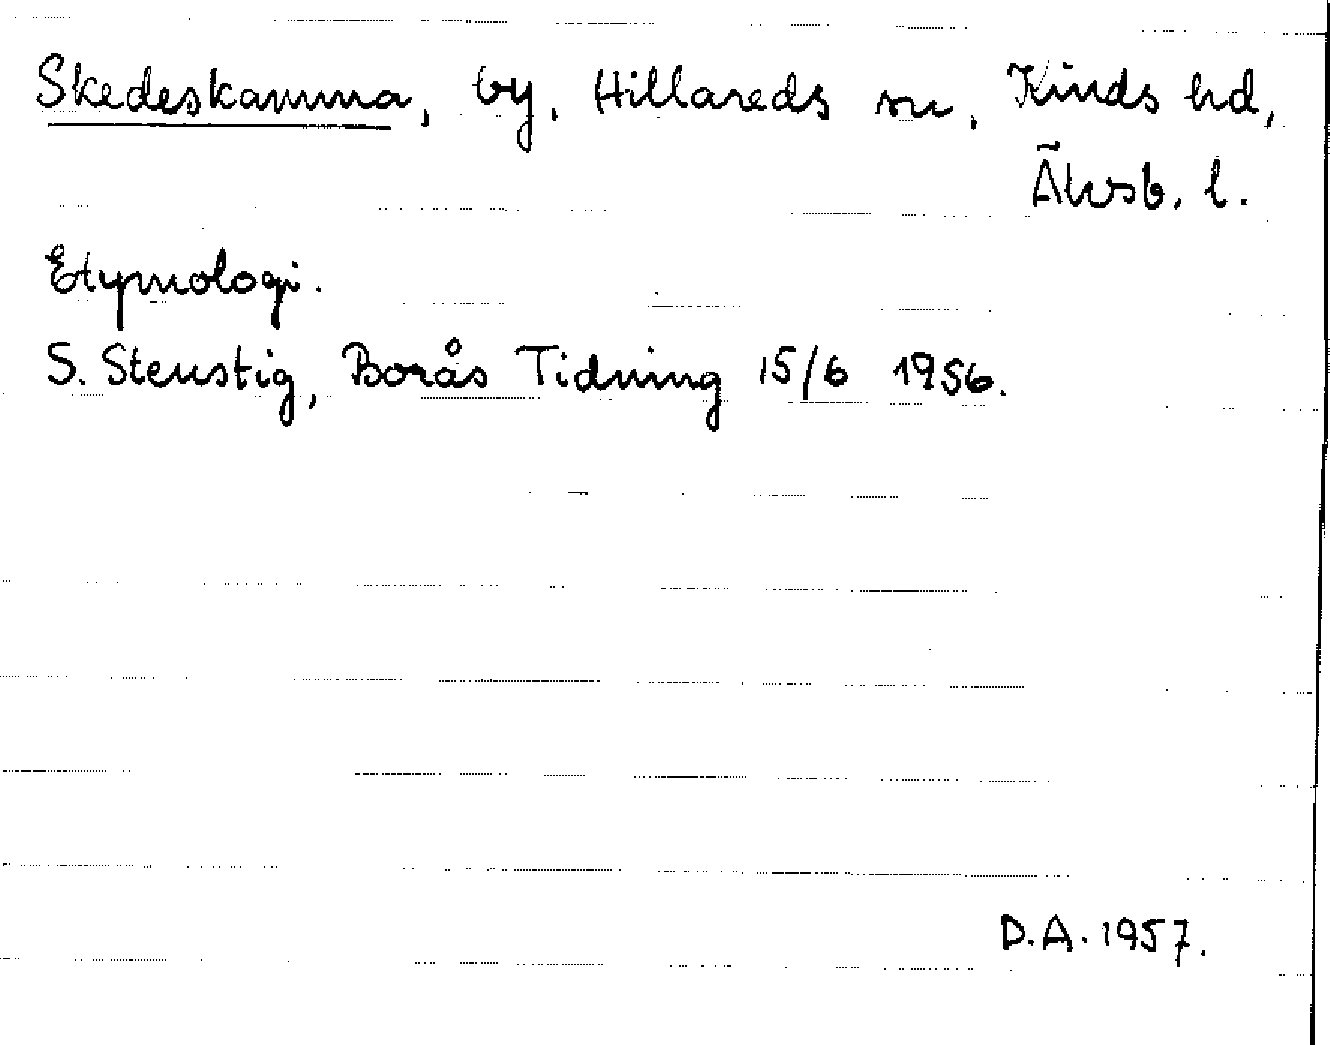 Skedeskamma, by, Hillareds sn, Kinds hd,
Älvsb. l.
Etymologi.
S. Stenstig, Borås Tidning 15/6 1956.
D.A. 1957.